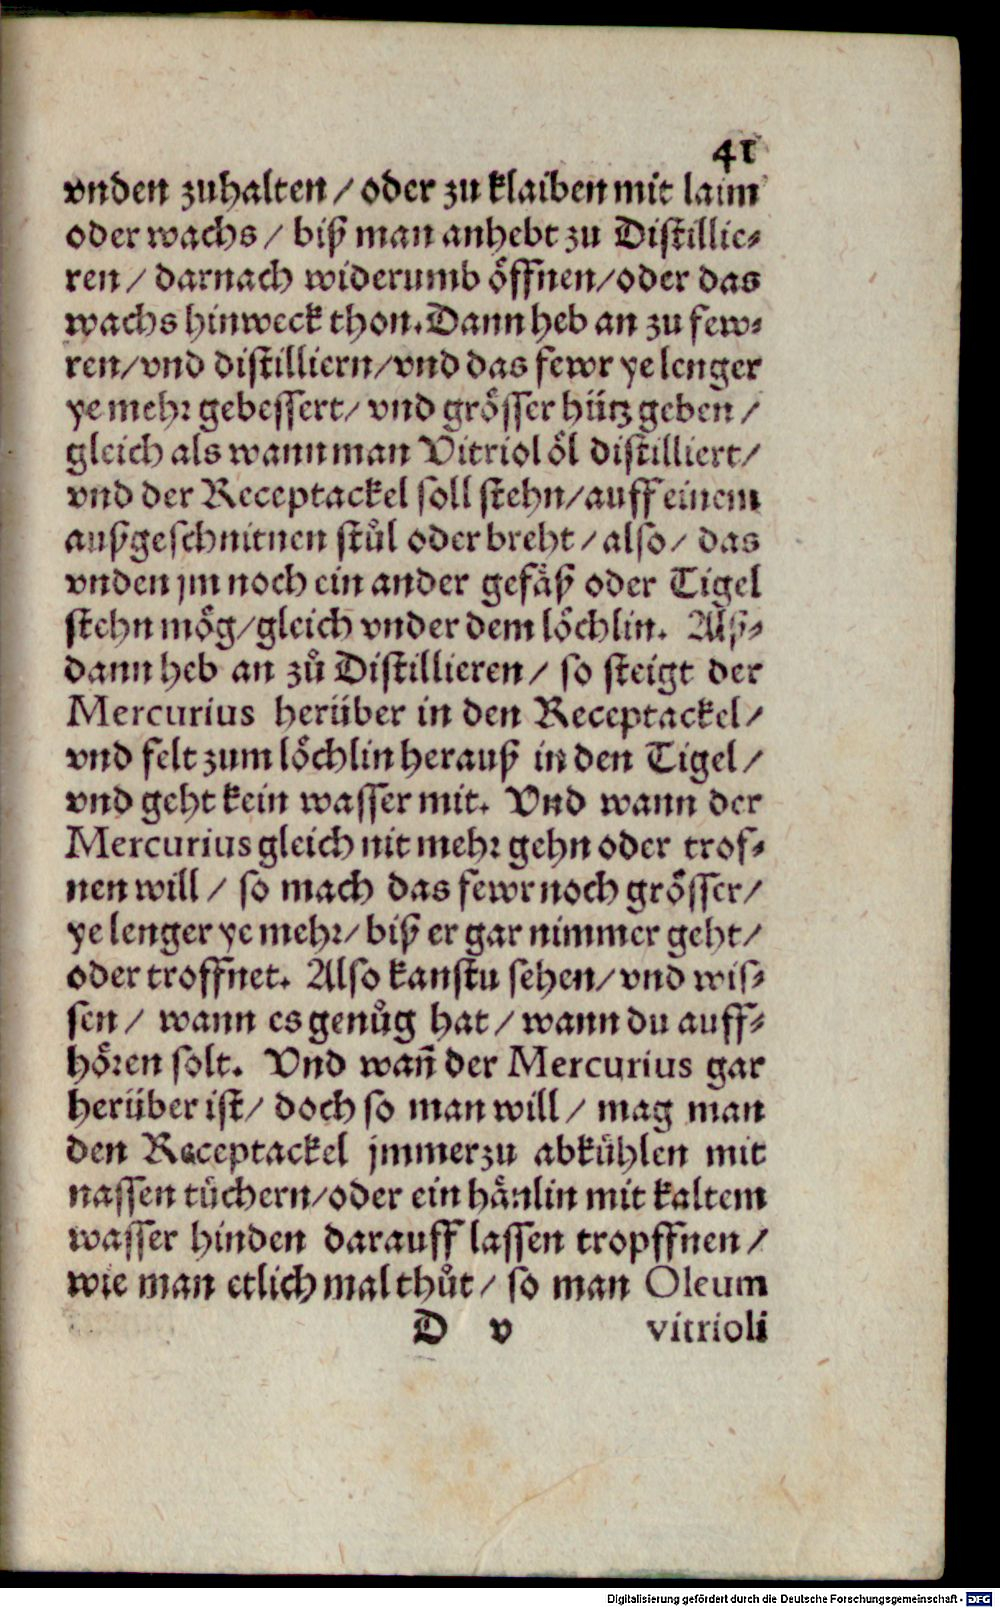 41
vnden zuhalten / oder zu klaiben mit laim
oder wachs / biß man anhebt zu Distillie-
ren / darnach widerumb öffnen / oder das
wachs hinweck thon. Dann heb an zu few-
ren / vnd distilliern / vnd das fewr ye lenger
ye mehr gebessert / vnd grösser hütz geben /
gleich als wann man Vitriol öl distilliert /
vnd der Receptackel soll stehn / auff einem
außgeschnitnen stůl oder breht / also / das
vnden jm noch ein ander gefäß oder Tigel
stehn mög / gleich vnder dem löchlin. Alß-
dann heb an zů Distillieren / so steigt der
Mercurius herüber in den Receptackel /
vnd felt zum löchlin herauß in den Tigel /
vnd geht kein wasser mit. Vnd wann der
Mercurius gleich nit mehr gehn oder trof-
nen will / so mach das fewr noch grösser /
ye lenger ye mehr / biß er gar nimmer geht /
oder troffnet. Also kanstu sehen / vnd wis-
sen / wann es genůg hat / wann du auff-
hören solt. Vnd wañ der Mercurius gar
herüber ist / doch so man will / mag man
den Receptackel jmmerzu abkühlen mit
nassen tüchern / oder ein hänlin mit kaltem
wasser hinden darauff lassen tropffnen /
wie man etlich mal thůt / so man Oleum
D v vitrioli
Digitalisierung gefördert durch die Deutsche Forschungsgemeinschaft - DFG